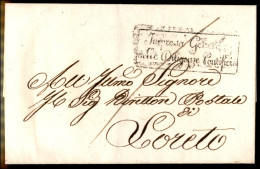 Impresa Generale
delle Diligenze Pontificie
All Illmo Signore
Il Sig Direttore Postale
di
Loreto